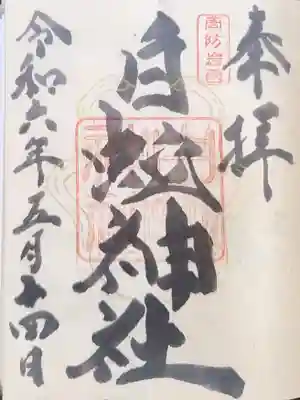 奉拝
周防岩国
白蛇神社
令和六年五月十四日